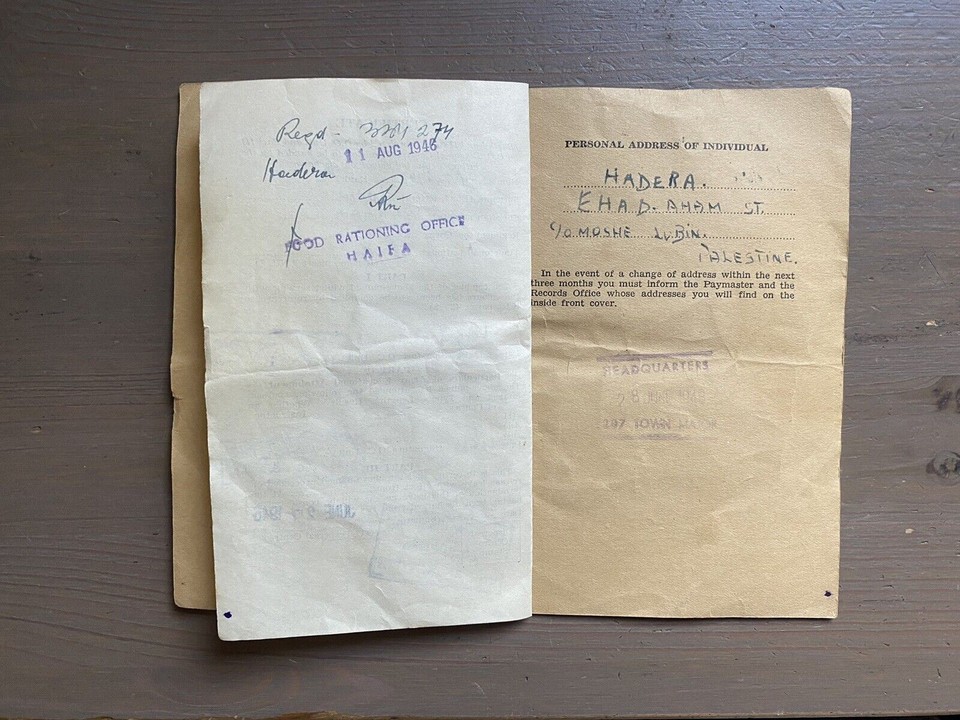 Regd -
11 AUG 1946
Hadera
FOOD RATIONING OFFICE
HAIFA
PERSONAL ADDRESS OF INDIVIDUAL
HADERA.
EHAD. AHAM ST.
C/O MOSHE LUBIN.
PALESTINE.
In the event of a change of address within the next
three months you must inform the Paymaster and the
Records Office whose addresses you will find on the
inside front cover.
HEADQUARTERS
297 TOWN MAJOR